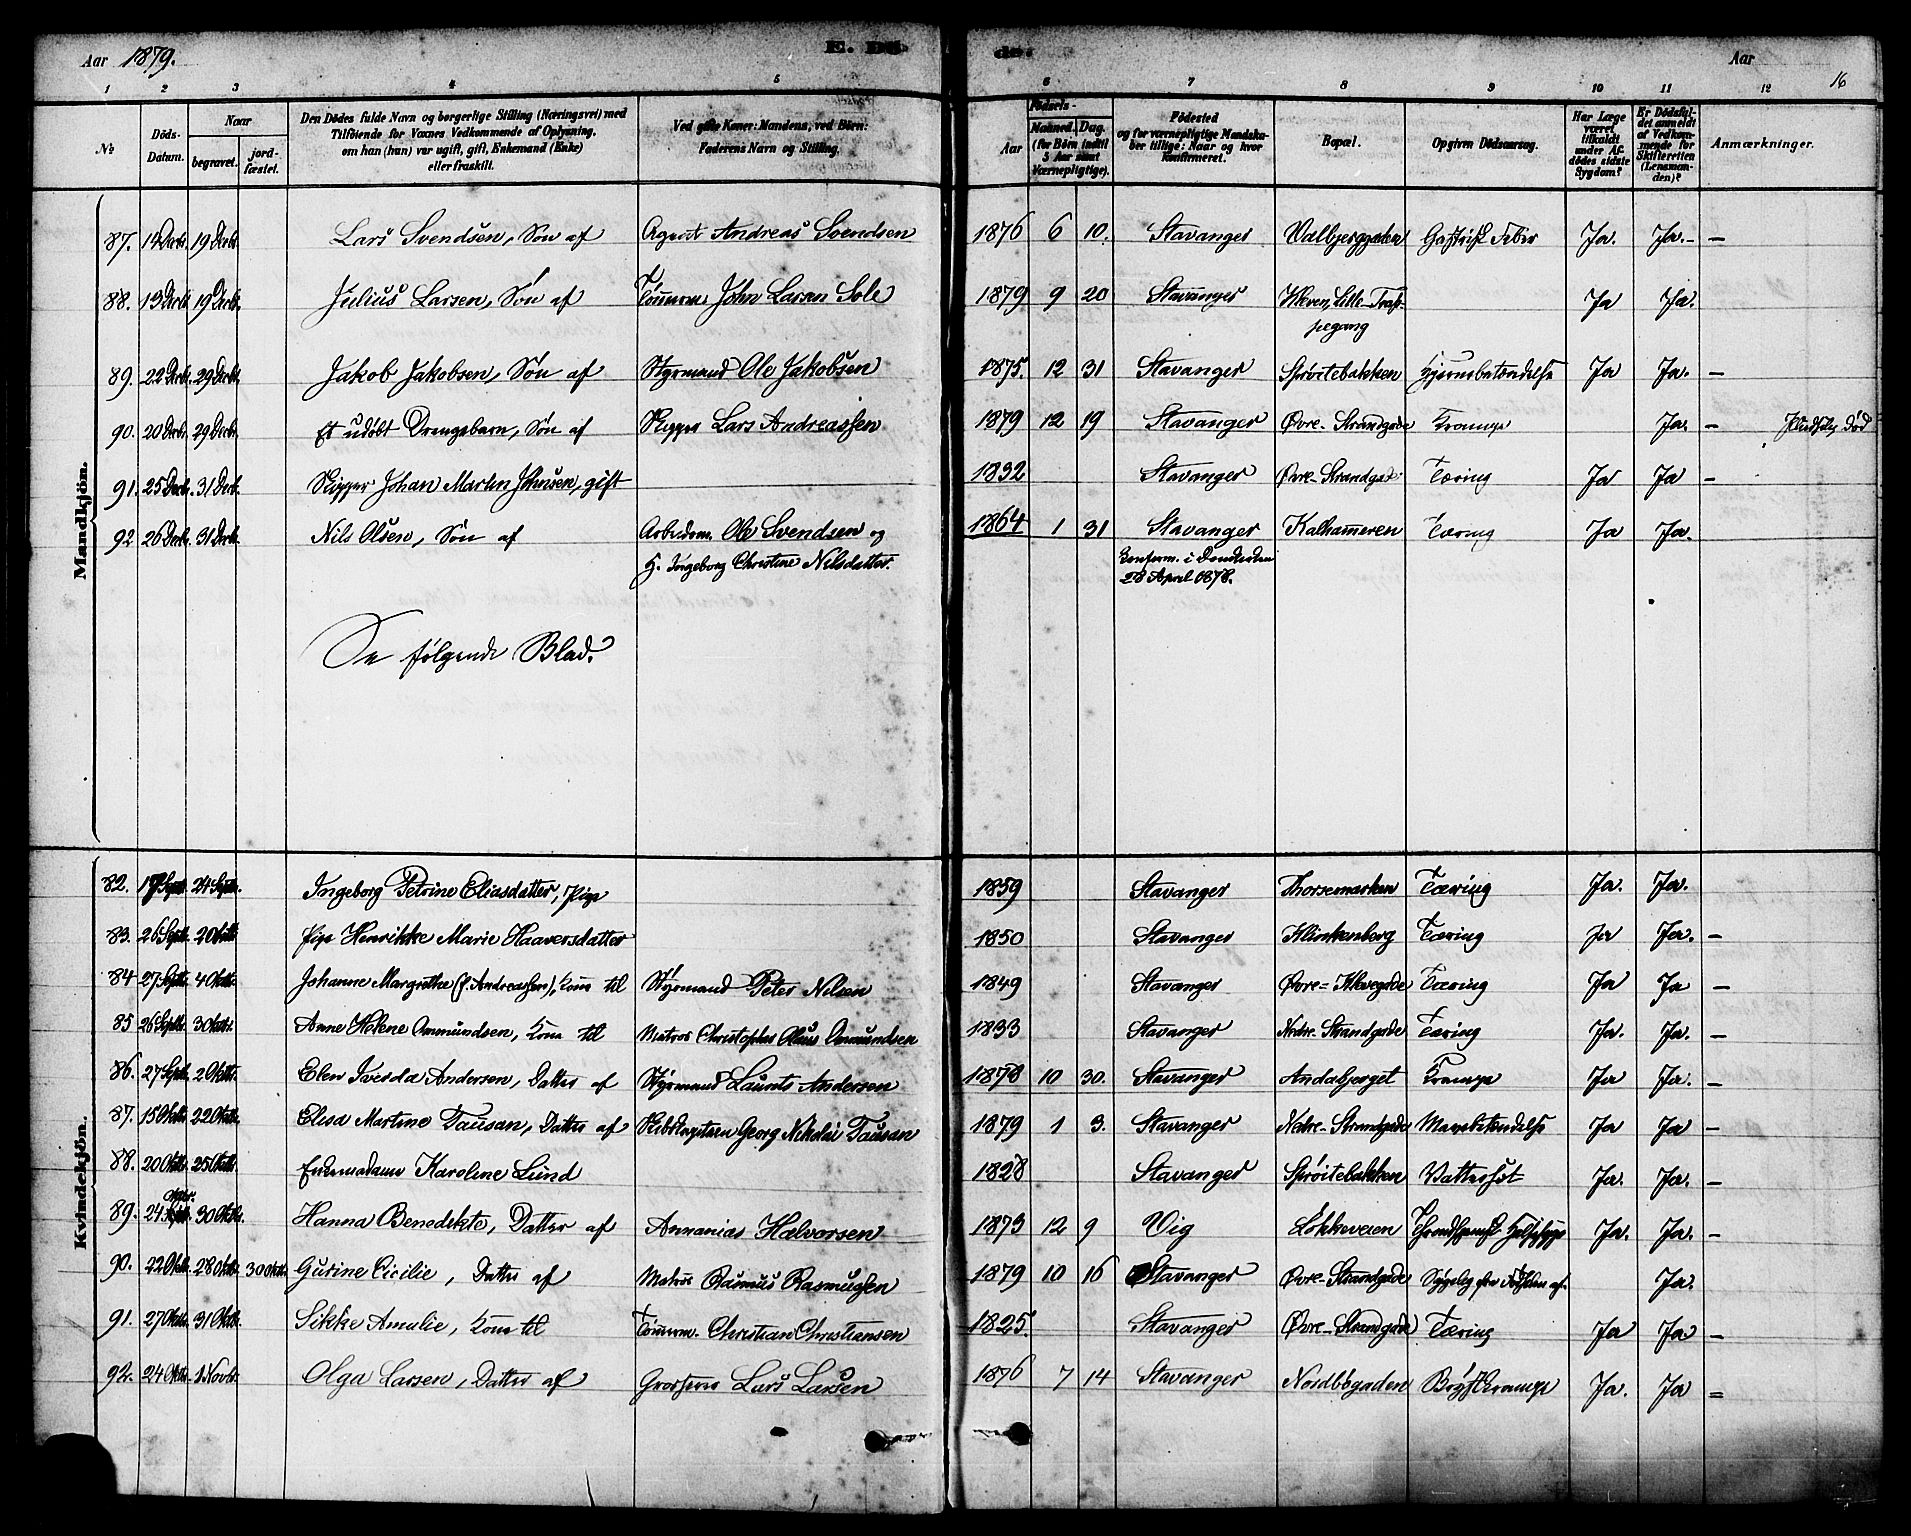 Aar 1879. E. Dö- de. Aar 16
1 2 3 4 5 6 7 8 9 10 11 12
No
Döds-Datum.
Naar
begravet. jord-fæstet.
Den Dödes fulde Navn og borgerlige Stilling (Næringsvei) med
Tilföiende for Voxnes Vedkommende af Oplysning,
om han (hun) var ugift, gift, Enkemand (Enke)
eller fraskilt.
Ved gifte Koner: Mandens, ved Börn:
Faderens Navn og Stilling.
Födsels-
Aar Maaned. Dag.
(for Börn indtil
5 Aar samt
Værnepligtige).
Födested
og for værnepligtige Mandska-
ber tillige: Naar og hvor
Konfirmeret.
Bopæl.
Opgiven Dödsaarsag.
Har Læge
været
tilkaldt
under Af-
dödes sidste
Sygdom?
Er Dödsfal-
det anmeldt
af Vedkom-
mende for
Skifteretten
(Lensman-
den)?
Anmærkninger.
Mandkjön.
87. 14 Decb. 19 Decb. Lars Svendsen, Søn af Agent Andreas Svendsen 1876 6 10. Stavanger Valbjerggaden Gastrisk Feber Ja. Ja. –
88. 13 Decb. 19 Decb. Julius Larsen, Søn af Tømrm. John Larsen Sole 1879 9 20 Stavanger Kleven, Lille Trap-
pegang Ja Ja.
89. 22 Decb. 29 Decb. Jakob Jakobsen, Søn af Styrmand Ole Jakobsen 1875. 12 31 Stavanger Sprøitebakken Hjernebetændelse Ja Ja. –
90. 20 Decb. 29 Decb. Et udøbt Drengebarn, Søn af Skipper Lars Andreassen 1879 12 19 Stavanger Øvre-Strandgade Krampe Ja. – Pludselig død
91. 25 Decb. 31 Decb. Skipper Johan Martin Johnsen, gift 1832 Stavanger Øvre-Strandgade Tæring Ja Ja –
92 26 Decb. 31 Decb. Nils Olsen, Søn af Arbeidsm. Ole Svendsen og 1864 1 31 Stavanger Kalhammeren Tæring Ja Ja.
H. Ingeborg Christine Nilsdatter. Konfirm. i Domkirken
28 April 1878.
Se følgende Blad.
Kvindekjön.
82. 17 Septb. 24 Septb. Ingeborg Petrine Eliasdatter, Pige 1859 Stavanger Thorsemarken Tæring Ja. Ja.
83. 26 Septb. 2 Oktb. Pige Henrikke Marie Haaversdatter 1850 Stavanger Klinkenberg Tæring Ja Ja. –
84 27 Septb. 4 Oktb. Johanne Margrethe (f. Andreassen), Kone til Styrmand Peter Nilsen 1849 Stavanger Øvre-Klevegade Tæring Ja Ja –
85 26 Septb. 3 Oktb. Anne Helene Ommundsen, Kone til Matros Christopher Olaus Ommundsen 1833 Stavanger Nedre-Strandgade Tæring Ja. Ja. –
86. 27 Septb. 2 Oktb. Elen Iverda Andersen, Datter af Styrmand Laurits Andersen 1878 10 30. Stavanger Andabjerget Krampe Ja Ja. –
87. 15 Oktb. 22 Oktb. Elisa Martine Tausan, Datter af Skibskaptein Georg Nikolai Tausan 1879 1 3. Stavanger Nedre-Strandgade Mavebetændelse Ja Ja –
88. 20 Oktb. 25 Oktb. Enkemadam Karoline Lund 1828 Stavanger Sprøitebakken Vattersot Ja. Ja. –
89. 24 Oktbr. 30 Oktb. Hanna Benedikte, Datter af Annanias Halvorsen 1873 12 9 Vig Løkkeveien Ja. Ja. –
90. 22 Oktb. 28 Oktb. 30 Oktb. Gurine Cicilie, Datter af Matros Rasmus Rasmussen 1879 10 16 Stavanger Øvre-Strandgade Sygelig fra Fødselen af. Ja.
91. 27 Oktb. 31 Oktb. Sikke Amalie, Kone til Tømrm. Christian Christiansen 1825. Stavanger Øvre-Strandgade Tæring Ja Ja –
92. 24 Oktb. 1 Novbr. Olga Larsen, Datter af Grosserer Lars Larsen 1876 7 14 Stavanger Nordbøgaden Brystkrampe Ja. Ja =